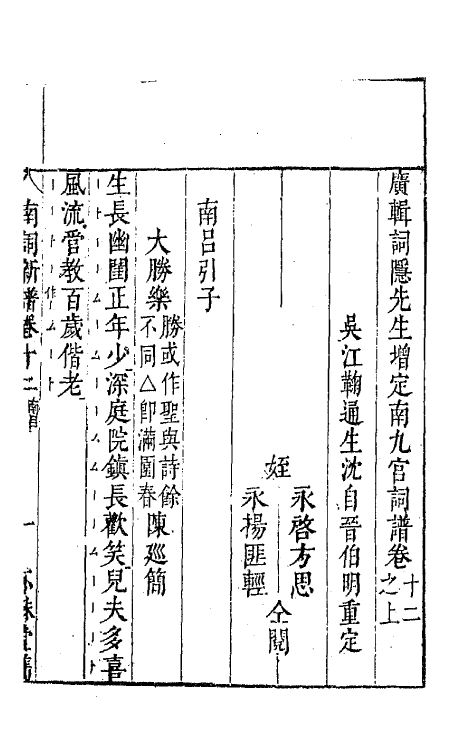 廣輯詞隱先生增定南九宮詞譜卷十二之上
吳江鞠通生沈自晉伯明重定
姪
永啓方思
永揚匪輕
仝閱
南呂引子
大勝樂 勝或作聖與詩餘不同△卽滿園春 陳廵簡
生長幽閨正年少深庭院鎮長歡笑兒夫多喜
風流管教百歲偕老
作
南詞新譜卷十二 一